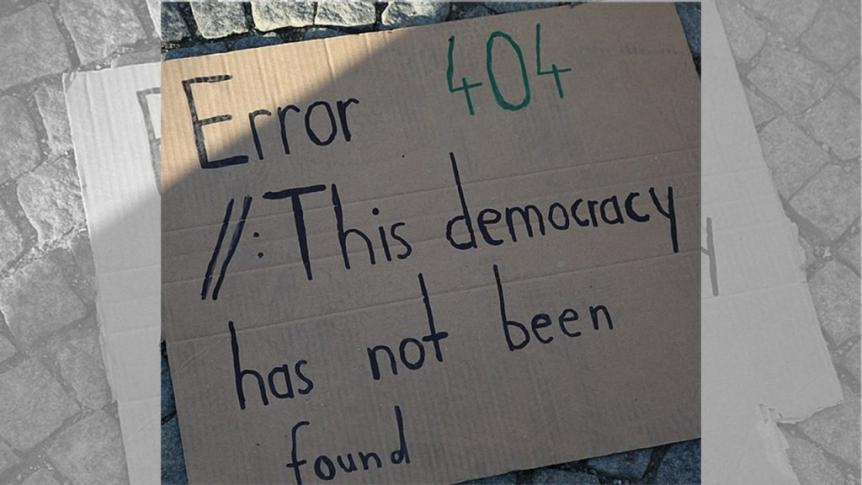 Error 404
//:This democracy
has not been
found